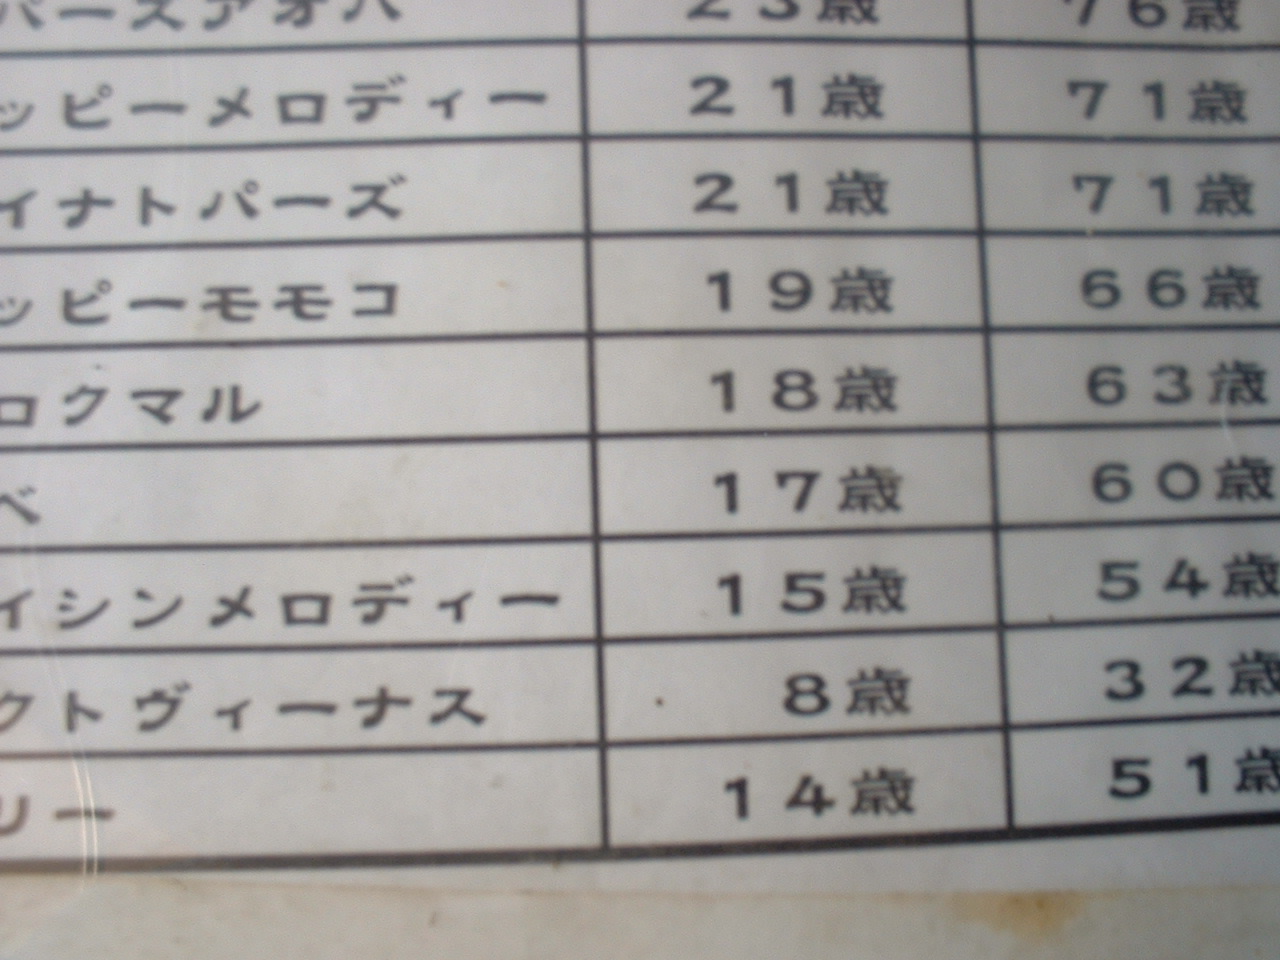 パーズアオバ 23歳 76歳
ッピーメロディー 21歳 71歳
イナトパーズ 21歳 71歳
ッピーモモコ 19歳 66歳
ロクマル 18歳 63歳
ベ 17歳 60歳
イシンメロディー 15歳 54歳
クトヴィーナス 8歳 32歳
リー 14歳 51歳